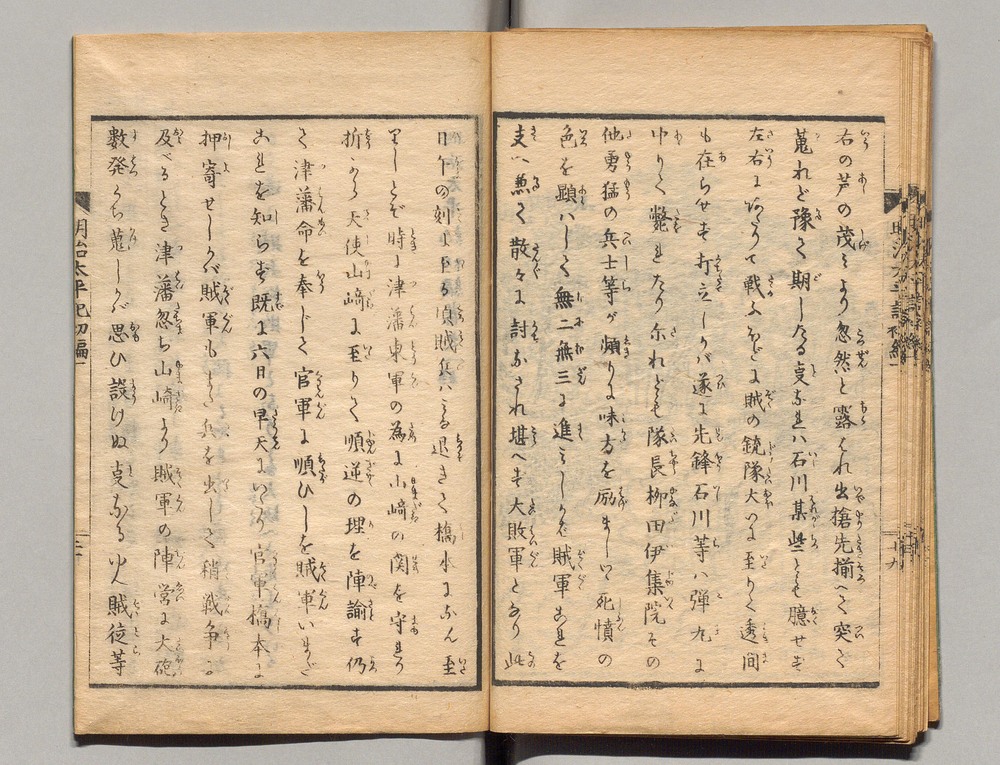 右の芦の茂みより忽然と露はれ出槍先揃へて突て
蒐れど豫て期したる事なれバ石川某些とも臆せず
左右にありて戦ふほどに賊の銃隊大に至りて透間
も在らせず打立しかバ遂に先鋒石川等ハ弾丸に
中りて斃れたり尓れども隊長柳田伊集院その
他勇猛の兵士等が頻りに味方を励まして死憤の
色を顕ハして無二無三に進みしかバ賊軍これを
支へ兼て散々に討なされ堪へず大敗軍となり此
日午の刻に至る頃賊兵 退きて橋本になん至
りしとぞ時に津藩東軍の為に山崎の関を守れり
折から天使山﨑に至りて順逆の理を陣諭す仍
て津藩命を奉じて官軍に順ひしを賊軍いまだ
これを知らず既に六日の早天にいたり官軍橋本に
押寄せしかバ賊軍もまた兵を出して稍戦争に
及べるとき津藩忽ち山崎より賊軍の陣営に大砲
数発うち蒐しかバ思ひ設けぬ事なる 賊徒等
明治太平記初編一